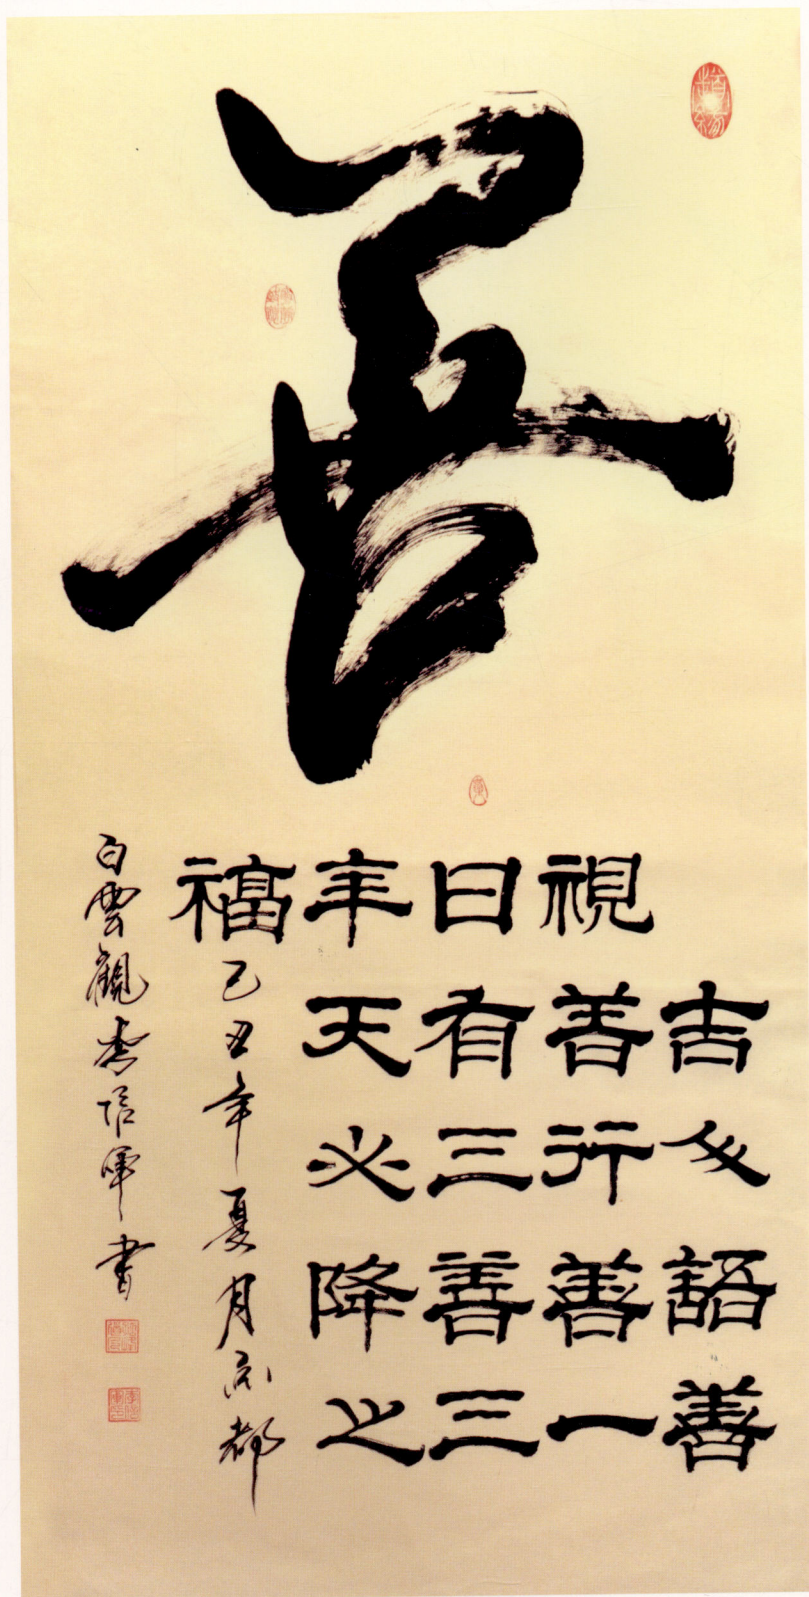 善
吉人語善
視善行善一
日有三善三
年天必降之
福
己丑年夏月都
白雲觀李信軍書